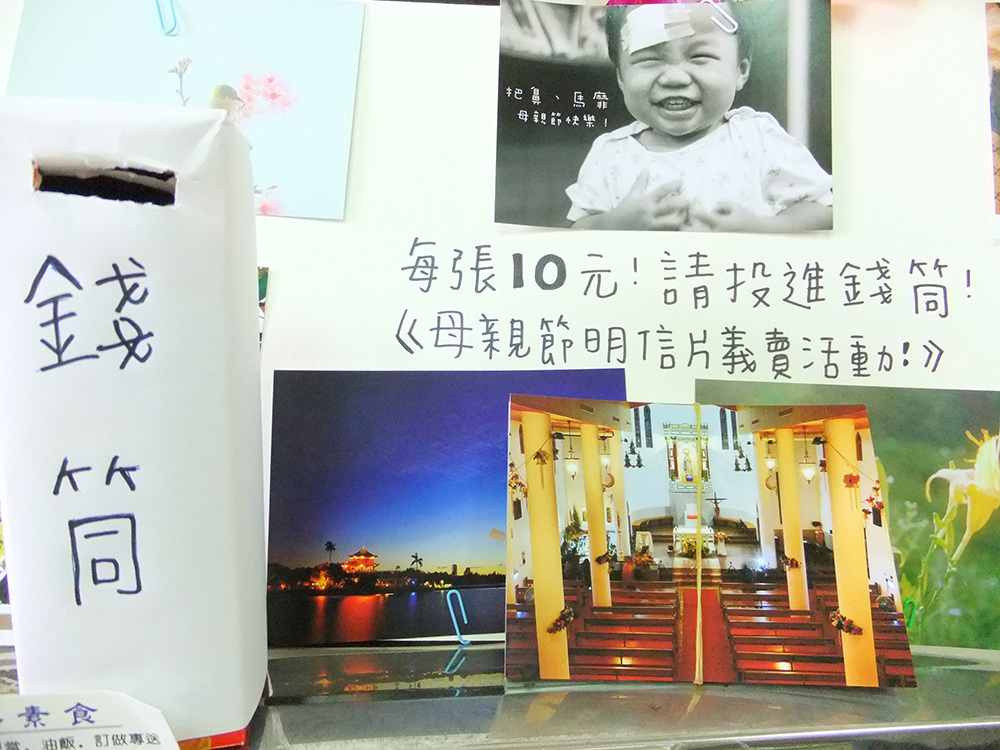 把鼻、馬麻
母親節快樂!
每張10元!請投進錢筒!
《母親節明信片義賣活動!》
錢筒
素食
油飯.訂做專送